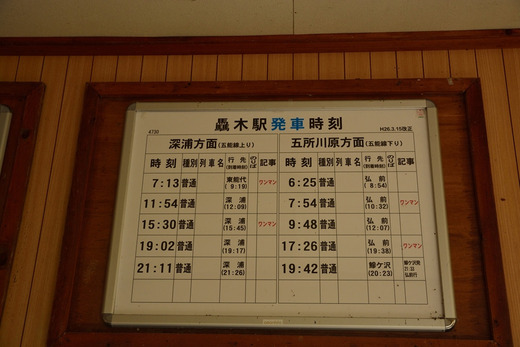 轟木駅発車時刻
4730
H26.3.15改正
深浦方面(五能線上り)
時刻 種別 列車名 行先(到着時刻) のりば 記事
7:13 普通 東能代(9:19) ワンマン
11:54 普通 深浦(12:09)
15:30 普通 深浦(15:45) ワンマン
19:02 普通 深浦(19:17)
21:11 普通 深浦(21:26)
五所川原方面(五能線下り)
時刻 種別 列車名 行先(到着時刻) のりば 記事
6:25 普通 弘前(8:54)
7:54 普通 弘前(10:32) ワンマン
9:48 普通 弘前(12:07)
17:26 普通 弘前(19:38) ワンマン
19:42 普通 鰺ケ沢(20:23) 鰺ケ沢発
弘前行